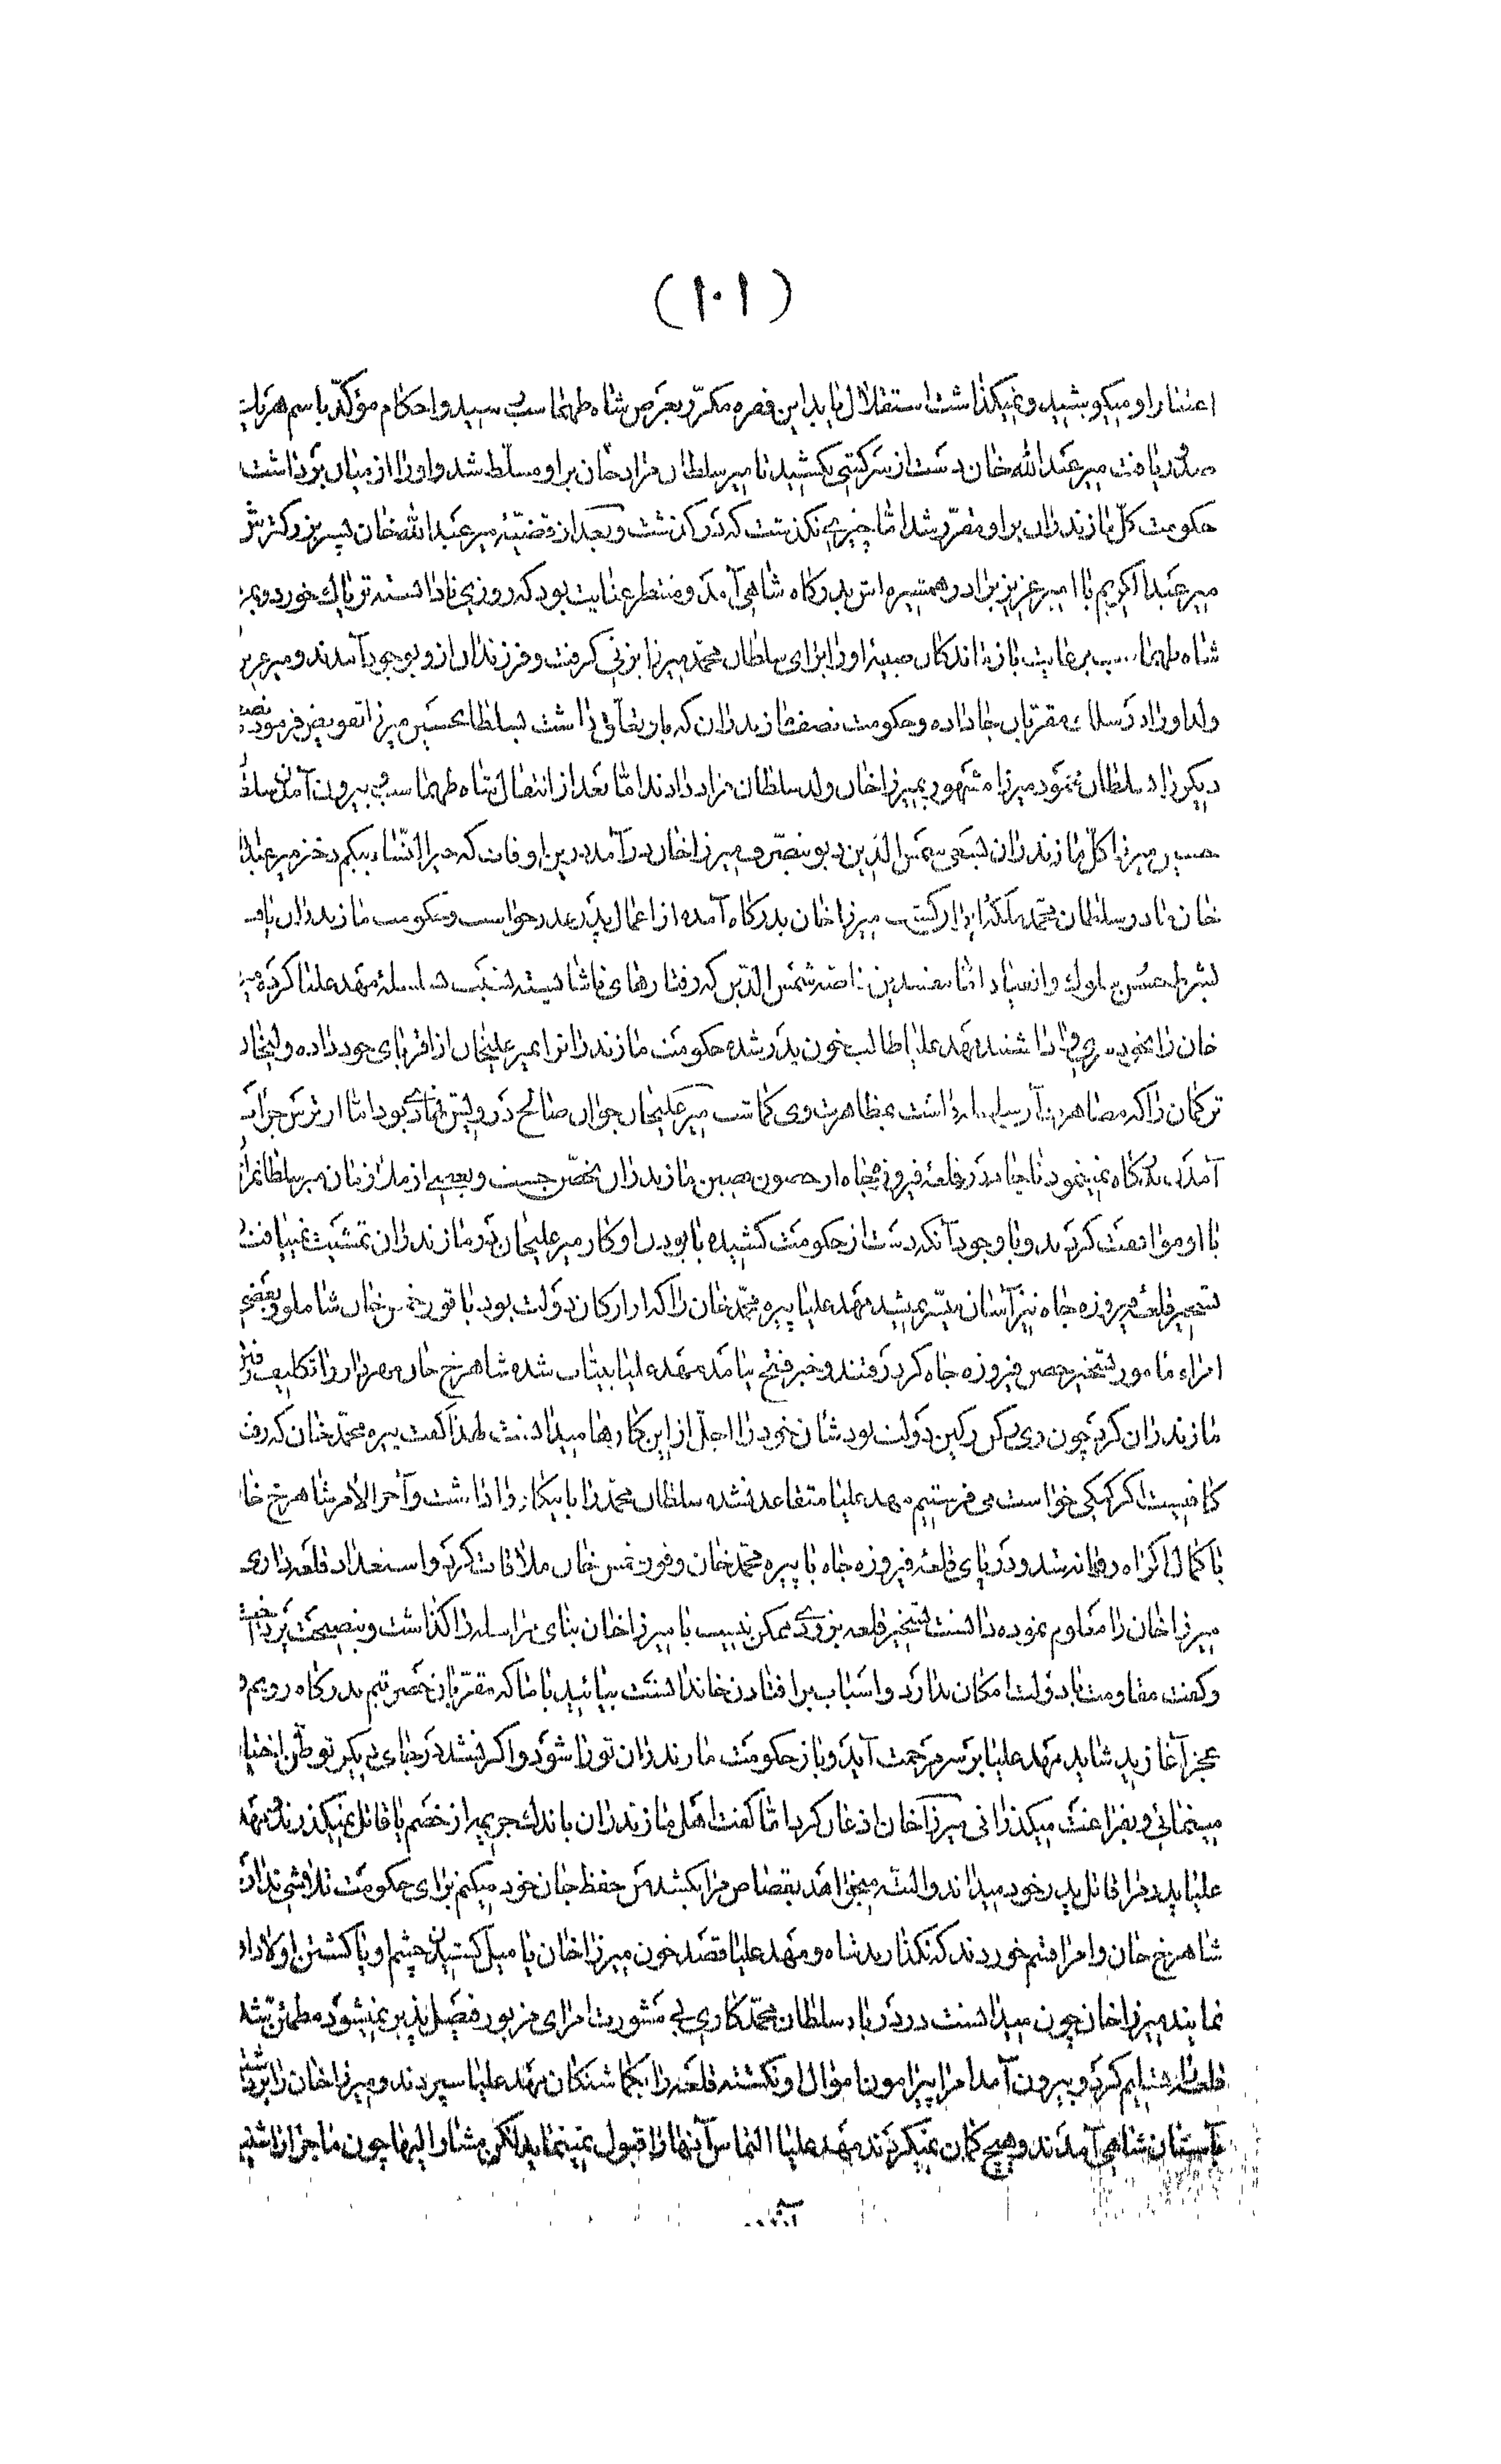 (۱۰۱)
اعتنا باو میکوشید و نمیگذاشت استقلال یابد این فصره مکرّر بعرض شاه طهماسب رسید و احکام مؤکّد باسم هر یک
صدور یافت میر عبدالله خان دست از سرکشی نکشید تا میر سلطان مراد خان بر او مسلّط شد و او را از میان برداشت
حکومت کلّ مازندران بر او مقرّر شد امّا چیزی نگذشت که درگذشت و بعد از قضیّهٔ میر عبدالله خان پسر بزرگترش
میر عبدالکریم با امیر عزیز برادر و همشیره اش بدرگاه شاهی آمد و منتظر عنایت بود که روزی نادانسته تریاک خورد و بمرد
شاه طهماسب برعایت بازماندگان صبیهٔ او را برای سلطان محمّد میرزا بزنی گرفت و فرزندان از او بوجود آمدند و میر عزیز
ولد او را در سلک مقرّبان جا داده و حکومت نصف مازندران که باو تعلّق داشت بسلطان حسین میرزا تفویض فرمود نصف
دیگر را سلطان محمود میرزا مشهور بمیرزا خان ولد سلطان مراد دادند امّا بعد از انتقال شاه طهماسب و بیرون آمدن سلطان
حسین میرزا کلّ مازندران بسعی شمس الدّین دیو بتصرّف میرزا خان درآمد درین اوقات که خیرالنّساء بیگم دختر میر عبدالله
خان مادر سلطان محمّد ملکه ایران گشت میرزا خان بدرگاه آمده از اعمال پدر عذر خواست و حکومت مازندران یافت
بشرط حسن سلوک و انقیاد امّا مفسدین خاصه شمس الدّین که رفتارهای ناشایسته نسبت بسلسله مهد علیا کرده میر
خان را بخود سری وا داشتند مهد علیا طالب خون پدر شده حکومت مازندران را بمیر علیخان از اقربای خود داده و لیخان
ترکمان را که مصاهرت آن سلسله داشت بمظاهرت وی گماشت میر علیخان جوان صالح درویش نهادی بود امّا از ترس جرأت
آمدن بدرگاه نمینمود ناچار در قلعه فیروز جاه از حصون حصین مازندران تحصّن جست و بعضی از ملازمان میر سلطانمراد
با او موافقت کردند و با وجود آنکه دست از حکومت کشیده بابود او کار میر علیخان در مازندران تمشیت نمییافت
تسخیر قلعه فیروزه جاه نیز آسان میسّر نمیشد مهد علیا پیره محمّد خان را که از ارکان دولت بود با قورخمس خان شاملو و بعضی
امراء مامور تسخیر حصن فیروزه جاه کرد رفتند و خبر فتح نیامد مهد علیا بیتاب شده شاهرخ خان مهردار را تکلیف رفتن
مازندران کرد چون وی رکن رکین دولت بود شان خود را اجلّ از این کارها میدانست لهذا گفت پیره محمّد خان که رفت
کافیست اگر کمکی خواست می فرستیم مهد علیا متقاعد نشده سلطان محمّد را با بینکار وا داشت و آخر الامر شاهرخ خان
با کمال اکراه روانه شد و در پای قلعه فیروزه جاه با پیره محمّد خان و قورخمس خان ملاقات کرد و استعداد قلعه داری
میرزا خان را معلوم نموده دانست تسخیر قلعه بزودی ممکن نیست با میرزا خان بنای مراسله را گذاشت و بنصیحت پرداخت
و گفت مقاومت با دولت امکان ندارد و اسباب برافتادن خاندانست بیائید با ما که مقرّبان حضرتیم بدرگاه رویم و
عجز آغازید شاید مهد علیا بر سر مرحمت آید و باز حکومت مازندران تو را شود و اگر نشد در جای دیگر توطّن اختیار
مینمائی و بفراغت میگذرانی میرزا خان اذعان کرد امّا گفت اهل مازندران باندک جریمه از خصم یا قاتل نمیگذرند مهد
علیا پدر مرا قاتل پدر خود میداند و البتّه میخواهد بقصاص مرا بکشد من حفظ جان خود میکنم برای حکومت تلاشی ندارم
شاهرخ خان و امرا قسم خوردند که نگذارند شاه و مهد علیا قصد خون میرزا خان یا میل کشیدن چشم او یا کشتن اولاد او
نمایند میرزا خان چون میدانست در دربار سلطان محمّد کاری بی مشورت امرای مزبور فیصل پذیر نمیشود مطمئنّ شد
قلعه را تسلیم کرد و بیرون آمد امرا پیرامون اموال او نگشته قلعه را بگماشتگان مهد علیا سپردند و میرزا خان را برداشته
بآستان شاهی آمدند و هیچ گمان نمیکردند مهد علیا التماس آنها را قبول نمینماید لکن مشار الیها چون ماجرا را شنید